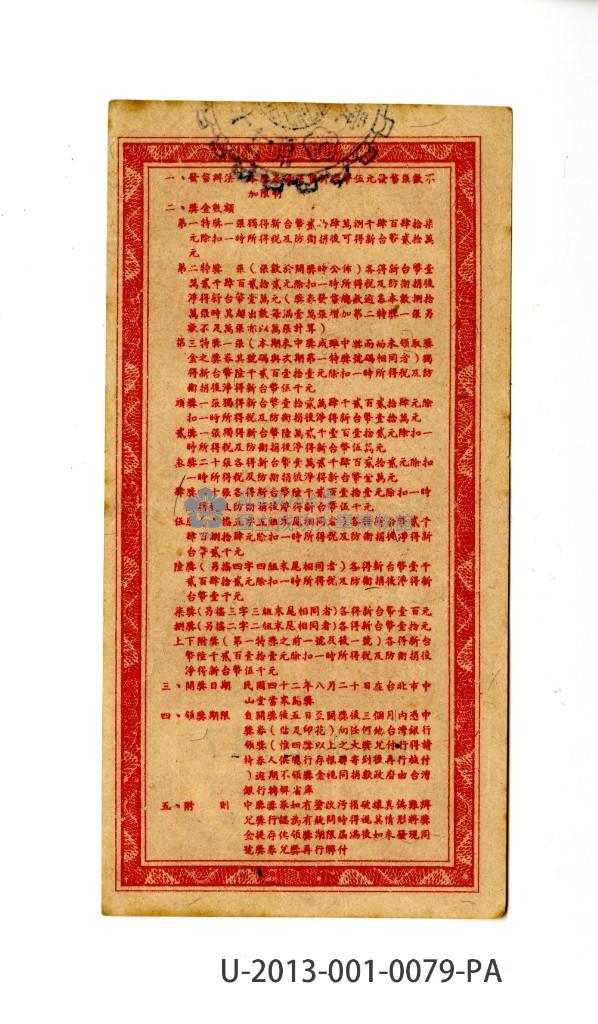 一、發售辦法
加限制
二、獎金數額
第一特獎一張獨得新台幣貳拾肆萬捌千肆百肆拾柒
元除扣一時所得稅及防衛捐後可得新台幣貳拾萬
元
第二特獎 張(張數於開獎時公佈)各得新台幣壹
萬貳千肆百貳拾貳元除扣一時所得稅及防衛捐後
淨得新台幣壹萬元(獎券發售總數逾基本數捌拾
萬張時其超出數每滿壹萬張增加第二特獎一張另
數不足萬張亦以萬張計算)
第三特獎一張(本期未中獎或雖中獎而尚未領取獎
金之獎券其號碼與次期第一特獎號碼相同者)獨
得新台幣陸千貳百壹拾壹元除扣一時所得稅及防
衛捐後淨得新台幣伍千元
頭獎一張獨得新台幣壹拾貳萬肆千貳百貳拾肆元除
扣一時所得稅及防衛捐後淨得新台幣壹拾萬元
貳獎一張獨得新台幣陸萬貳千壹百壹拾貳元除扣一
時所得稅及防衛捐後淨得新台幣伍萬元
叁獎二十張各得新台幣壹萬貳千肆百貳拾貳元除扣
一時所得稅及防衛捐後淨得新台幣壹萬元
肆獎 張各得新台幣陸千貳百壹拾壹元除扣一時
所得稅及防衛捐後淨得新台幣伍千元
伍獎(另搖五字五組末尾相同者)各得新台幣貳千
肆百捌拾肆元除扣一時所得稅及防衛捐後淨得新
台幣貳千元
陸獎(另搖四字四組末尾相同者)各得新台幣壹千
貳百肆拾貳元除扣一時所得稅及防衛捐後淨得新
台幣壹千元
柒獎(另搖三字三組末尾相同者)各得新台幣壹百元
捌獎(另搖二字二組末尾相同者)各得新台幣拾元
上下附獎(第一特獎之前一號及後一號)各得新台
幣陸千貳百壹拾壹元除扣一時所得稅及防衛捐後
淨得新台幣伍千元
三、開獎日期 民國四十二年八月二十日在台北市中
山堂當眾開獎
四、領獎期限 自開獎後五日至開獎後三個月內憑中
獎券(貼足印花)向任何地台灣銀行
領獎(惟四獎以上之大獎兌付行得請
待券人俟總行存根聯寄到後再行核付
)逾期不領獎金視同捐歡政府由台灣
銀行轉解省庫
五、附則 中獎獎券如有塗改污損破壞真偽難辨
兌獎行認為有疑問時得視其情形將獎
金提存俟領獎期限屆滿後如未發現同
號獎券兌獎再行解付
U-2013-001-0079-PA